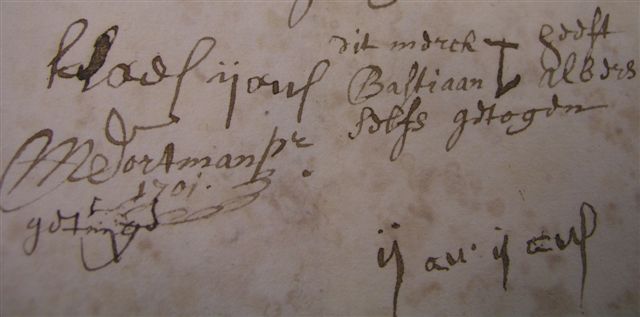 klaes ijans
dit merck heeft
Bastiaan Albers
selfs getogen
Dortman
1701.
getuige
ij ans